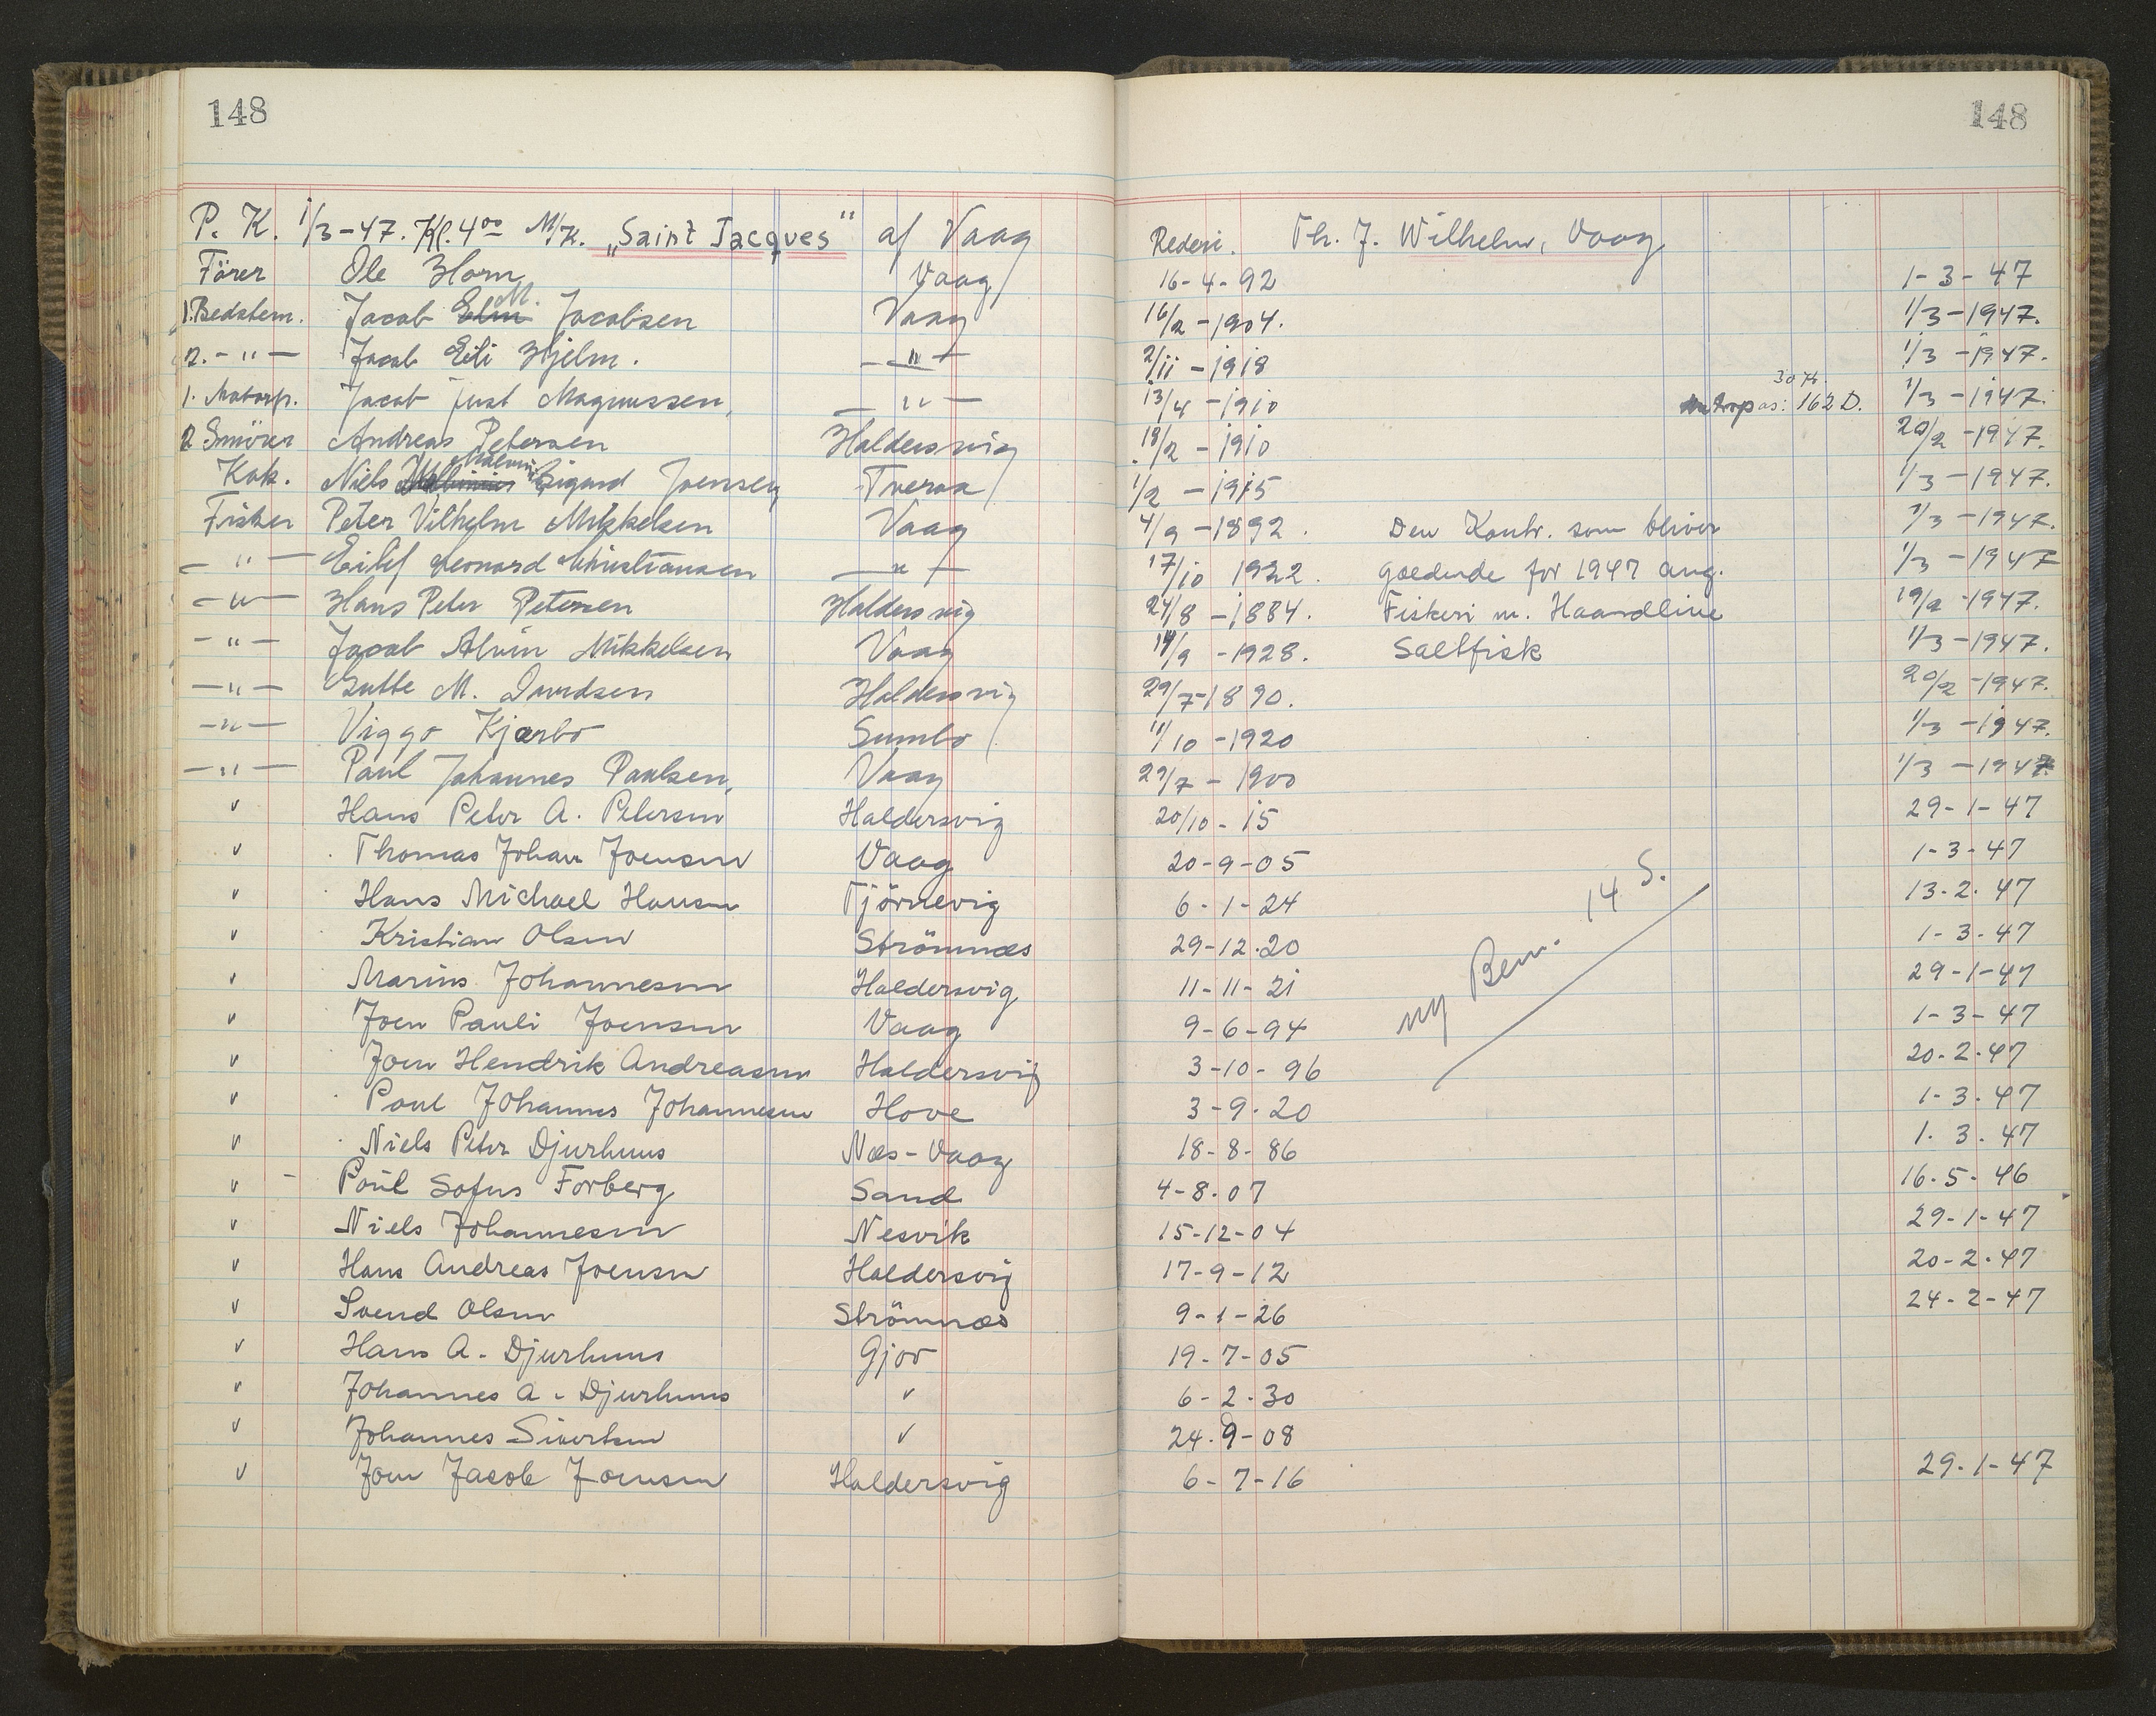 148 148
P. K. 1/3-47. Kl. 4⁰⁰ M/K. „Saint Jacques" af Vaag Rederi. Th. J. Wilhelm, Vaag
Förer Ole Horn Vaag 16-4-92 1-3-47
1. Bedstem. Jacob Elm M. Jacobsen Vaag 16/2-1904. 1/3-1947.
2. -"- Jacob Eli Hjelm. -"- 2/11-1918 1/3-1947.
30 H.
1. Motorp. Jacob Just Magnussen, -"- 13/4-1910 as: 162 D. 1/3-1947.
2 Smörer Andreas Petersen Haldersvig 18/2-1910 20/2-1947.
Kok. Niels Malvin Sigurd Joensen Tveraa 1/2-1915 1/3-1947.
Fisker Peter Vilhelm Mikkelsen Vaag 4/9-1892. Den Kontr. som bliver 1/3-1947.
-"- Eilif Leonard Christiansen -"- 17/10 1922. gældende for 1947 ang. 1/3-1947
-"- Hans Peter Petersen Haldersvig 24/8-1884. Fiskeri m. Haandline 19/2-1947.
-"- Jacob Alvin Mikkelsen Vaag 14/9-1928. Saltfisk 1/3-1947.
-"- Gutte M. Haldersvig 29/7-1890. 20/2-1947.
-"- Viggo Kjærbo Sumbo 11/10-1920 1/3-1947.
-"- Paul Johannes Paulsen, Vaag 29/7-1900 1/3-1947.
" Hans Peter A. Petersen Haldersvig 20/10-15 29-1-47
" Thomas Johan Joensen Vaag 20-9-05 1-3-47
" Hans Michael Hansen Tjörnevig 6-1-24 13-2-47
" Kristian Olsen Strömnæs 29-12-20 1-3-47
" Marius Johannesen Haldersvig 11-11-21 29-1-47
" Joen Pauli Joensen Vaag 9-6-94 ny Bem. 14 S. 1-3-47
" Joen Hendrik Andreasen Haldersvig 3-10-96 20-2-47
" Poul Johannes Johannesen Hove 3-9-20 1-3-47
" Niels Peter Djurhuus Næs-Vaag 18-8-86 1-3-47
" Poul Sofus Forberg Sand 4-8-07 16-5-46
" Niels Johannesen Nesvik 15-12-04 29-1-47
" Hans Andreas Joensen Haldersvig 17-9-12 20-2-47
" Svend Olsen Strömnæs 9-1-26 24-2-47
" Hans A. Djurhuus Gjov 19-7-05
" Johannes A. Djurhuus " 6-2-30
" Johannes Sivertsen " 24-9-08
" Joen Jacob Joensen Haldersvig 6-7-16 29-1-47